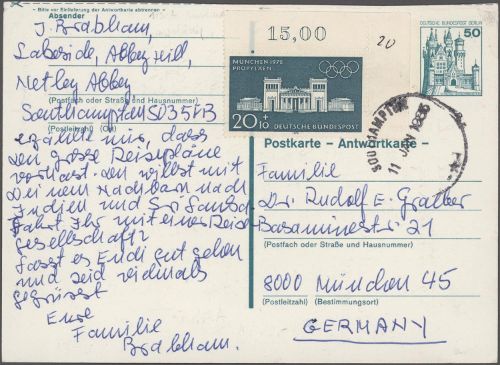 Bitte vor Einlieferung der Antwortkarte abtrennen
Absender
J. Brabham,
Lakeside, Abbey Hill,
Netley Abbey
(Postfach oder Straße und Hausnummer)
Southampton SO35
(Postleitzahl) (Ort)
erzählte mir, dass
Den große Reisepläne
vorhast. Du willst mit
Deinem Nachbarn nach
Indien und Sri Lanka.
Fährt Ihr mit einer Reise
gesellschaft?
Lasst es Euch gut gehen
und seid vielmals
gegrüsst
Eure
Familie
Brabham.
15,00
20
MÜNCHEN 1972
PROPYLÄEN
20+10 DEUTSCHE BUNDESPOST
DEUTSCHE BUNDESPOST BERLIN
50
SOUTHAMPTON
11 JAN 1986
Postkarte - Antwortkarte -
Familie
Dr. Rudolf E. Gratber
21
(Postfach oder Straße und Hausnummer)
8000 München 45
(Postleitzahl) (Bestimmungsort)
GERMANY